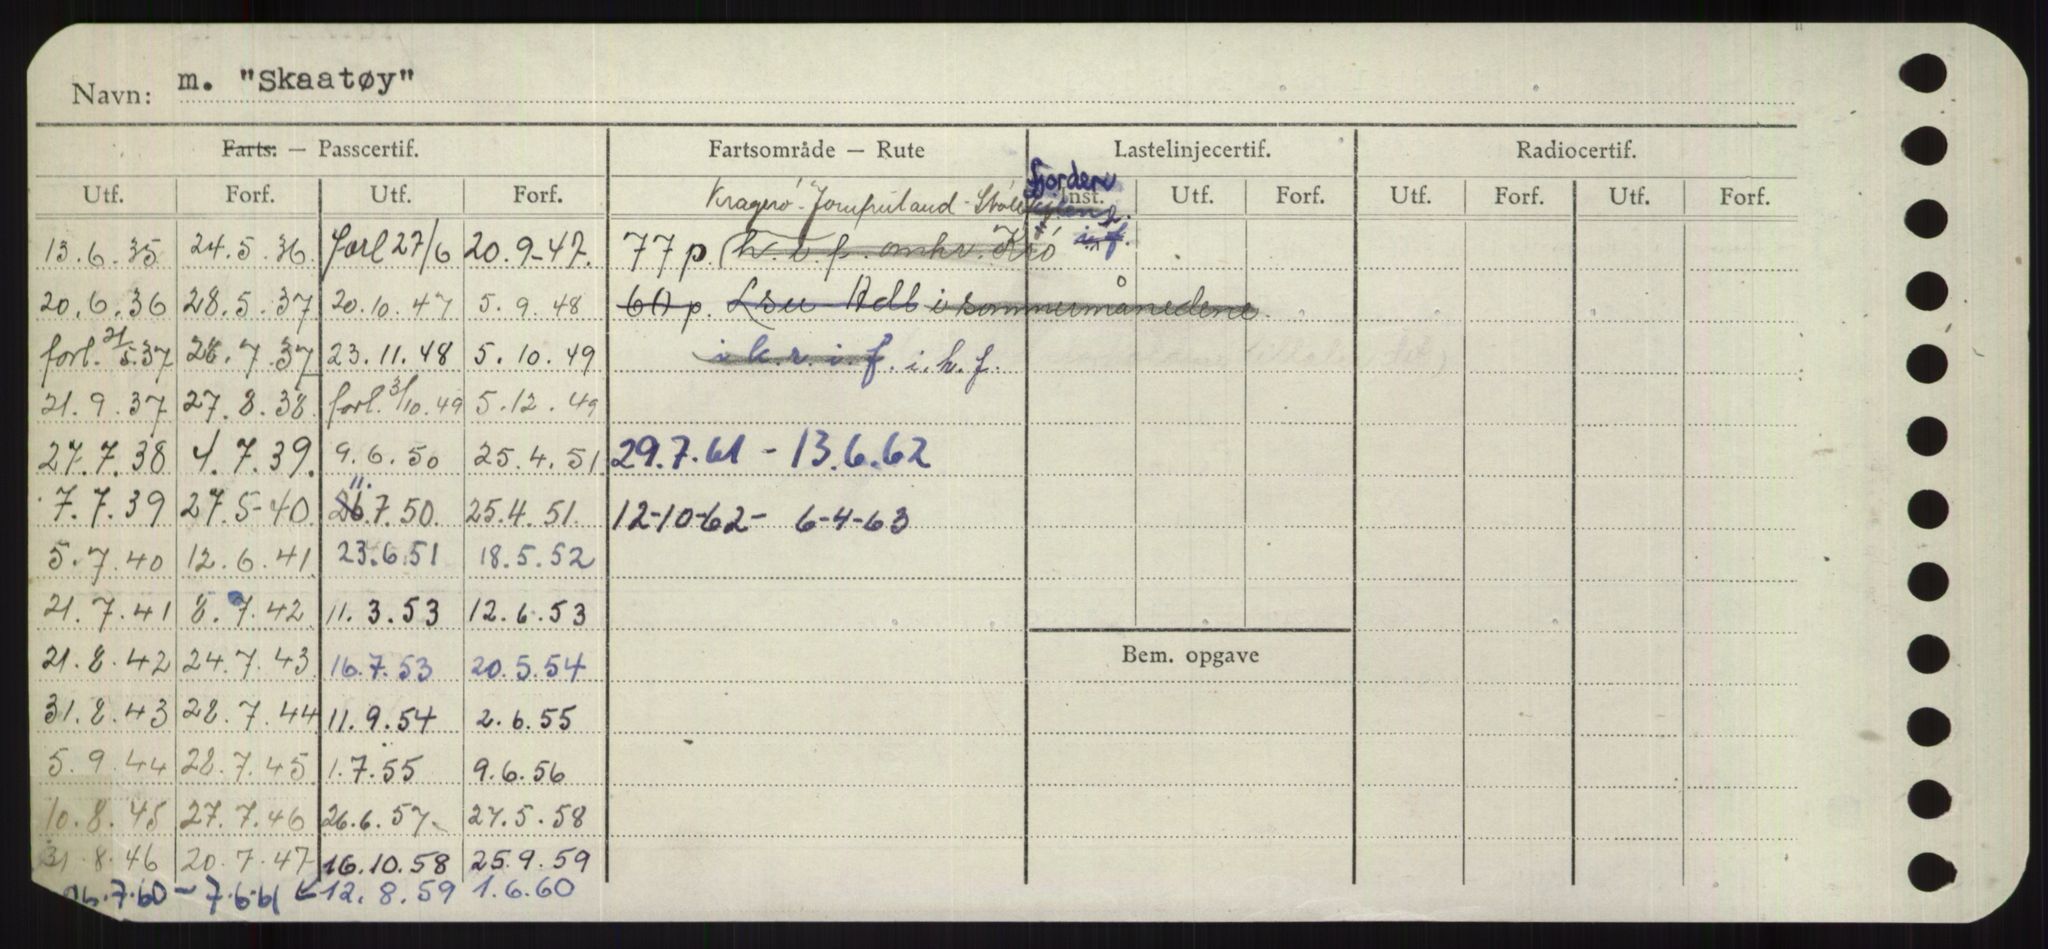 Navn: m. "Skaatøy"
Farts: — Passcertif. Fartsområde — Rute Lastelinjecertif. Radiocertif.
Utf. Forf. Utf. Forf. Inst. Utf. Forf. Utf. Forf. Utf. Forf.
fjorden
Kragerø - Jomfruland -
i. f.
13.6.35 24.5.36. forl 27/6 20.9-47. 77 p. h. i. f. omkr. Krø
20.6.36 28.5.37 20.10.47 5.9.48 60 p. Lsu Adb i sommermånedene.
forl. 21/5.37 28.7.37 23.11.48 5.10.49 i k. r. i. f. i. h. f.
21.9.37 27.8.38. forl. 3/10.49 5.12.49
27.7.38 1.7.39. 9.6.50 25.4.51. 29.7.61 - 13.6.62
7.7.39 27.5-40. 11. 26.7.50. 25.4.51. 12-10-62- 6-4-63
5.7.40 12.6.41 23.6.51 18.5.52
21.7.41 8.7.42 11.3.53 12.6.53
Bem. opgave
21.8.42 24.7.43 16.7.53 20.5.54
31.8.43 28.7.44 11.9.54 2.6.55
5.9.44 28.7.45 1.7.55 9.6.56
10.8.45 27.7.46 26.6.57 27.5.58
31.8.46 20.7.47 16.10.58 25.9.59
26.7.60 - 7.6.61 ← 12.8.59 1.6.60